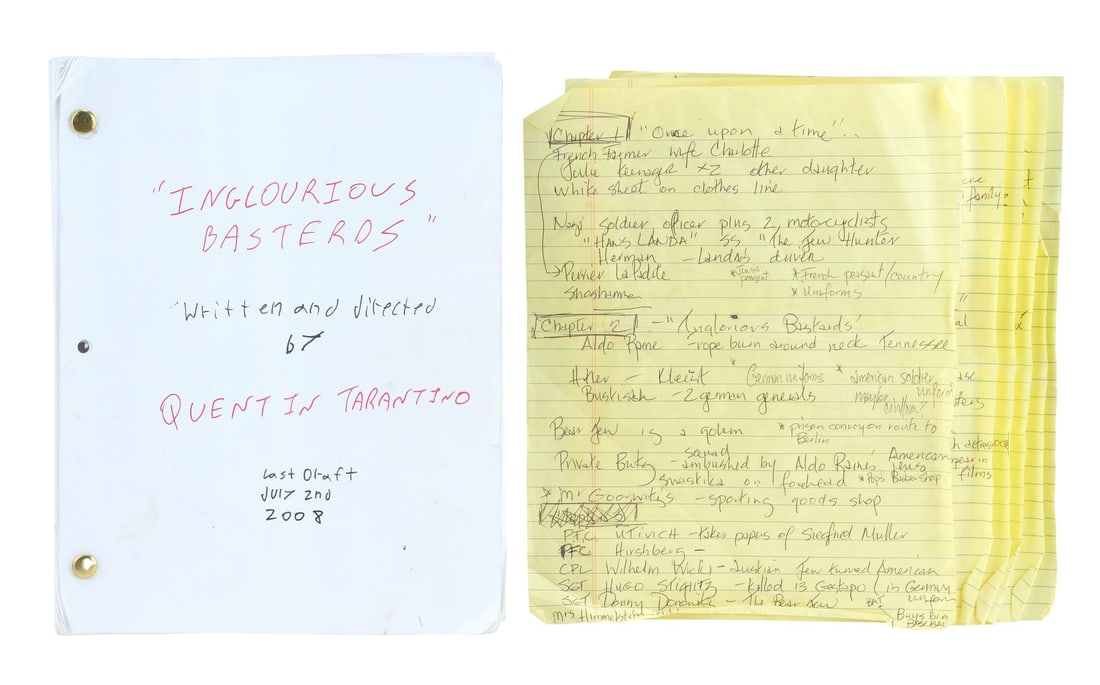 "INGLOURIOUS
BASTERDS"
"Written and directed
by
QUENTIN TARANTINO
Last Draft
July 2nd
2008
Chapter 1 "Once upon a time"..
French Farmer wife Charlotte
Julie teenager x2 other daughter
White sheet on clothes line
Nazi soldier officer plus 2 motorcyclists
"HANS LANDA" SS "The Jew Hunter
Herman - Landa's driver
Perrier LaPadite
*French peasant/country
Shoshanna
* Uniforms
Chapter 2 - "Inglorious Bastards'
Aldo Raine - rope burn around neck Tennessee
Hitler - Kleist
German uniforms * american soldier
uniform
- 2 german generals
maybe
Bear Jew is a golem
* prison convoy on route to
Berlin
squad
Private Butz - ambushed by Aldo Raines American
Jews
Swastika on forehead
* Pops Barber Shop
* Mr Goorwitz's - sporting goods shop
PFC UTIVICH - takes papers of Siegfried Muller
PFC Hirshberg -
CPL Wilhelm Wicki - Austian Jew turned American
SGT HUGO STIGLITZ - killed 13 Gestapo (in German
uniform
SGT Donny Donowitz - The Bear Jew
Buys big
BASEBALL
BAT
Mrs Himmelstein
family?
films